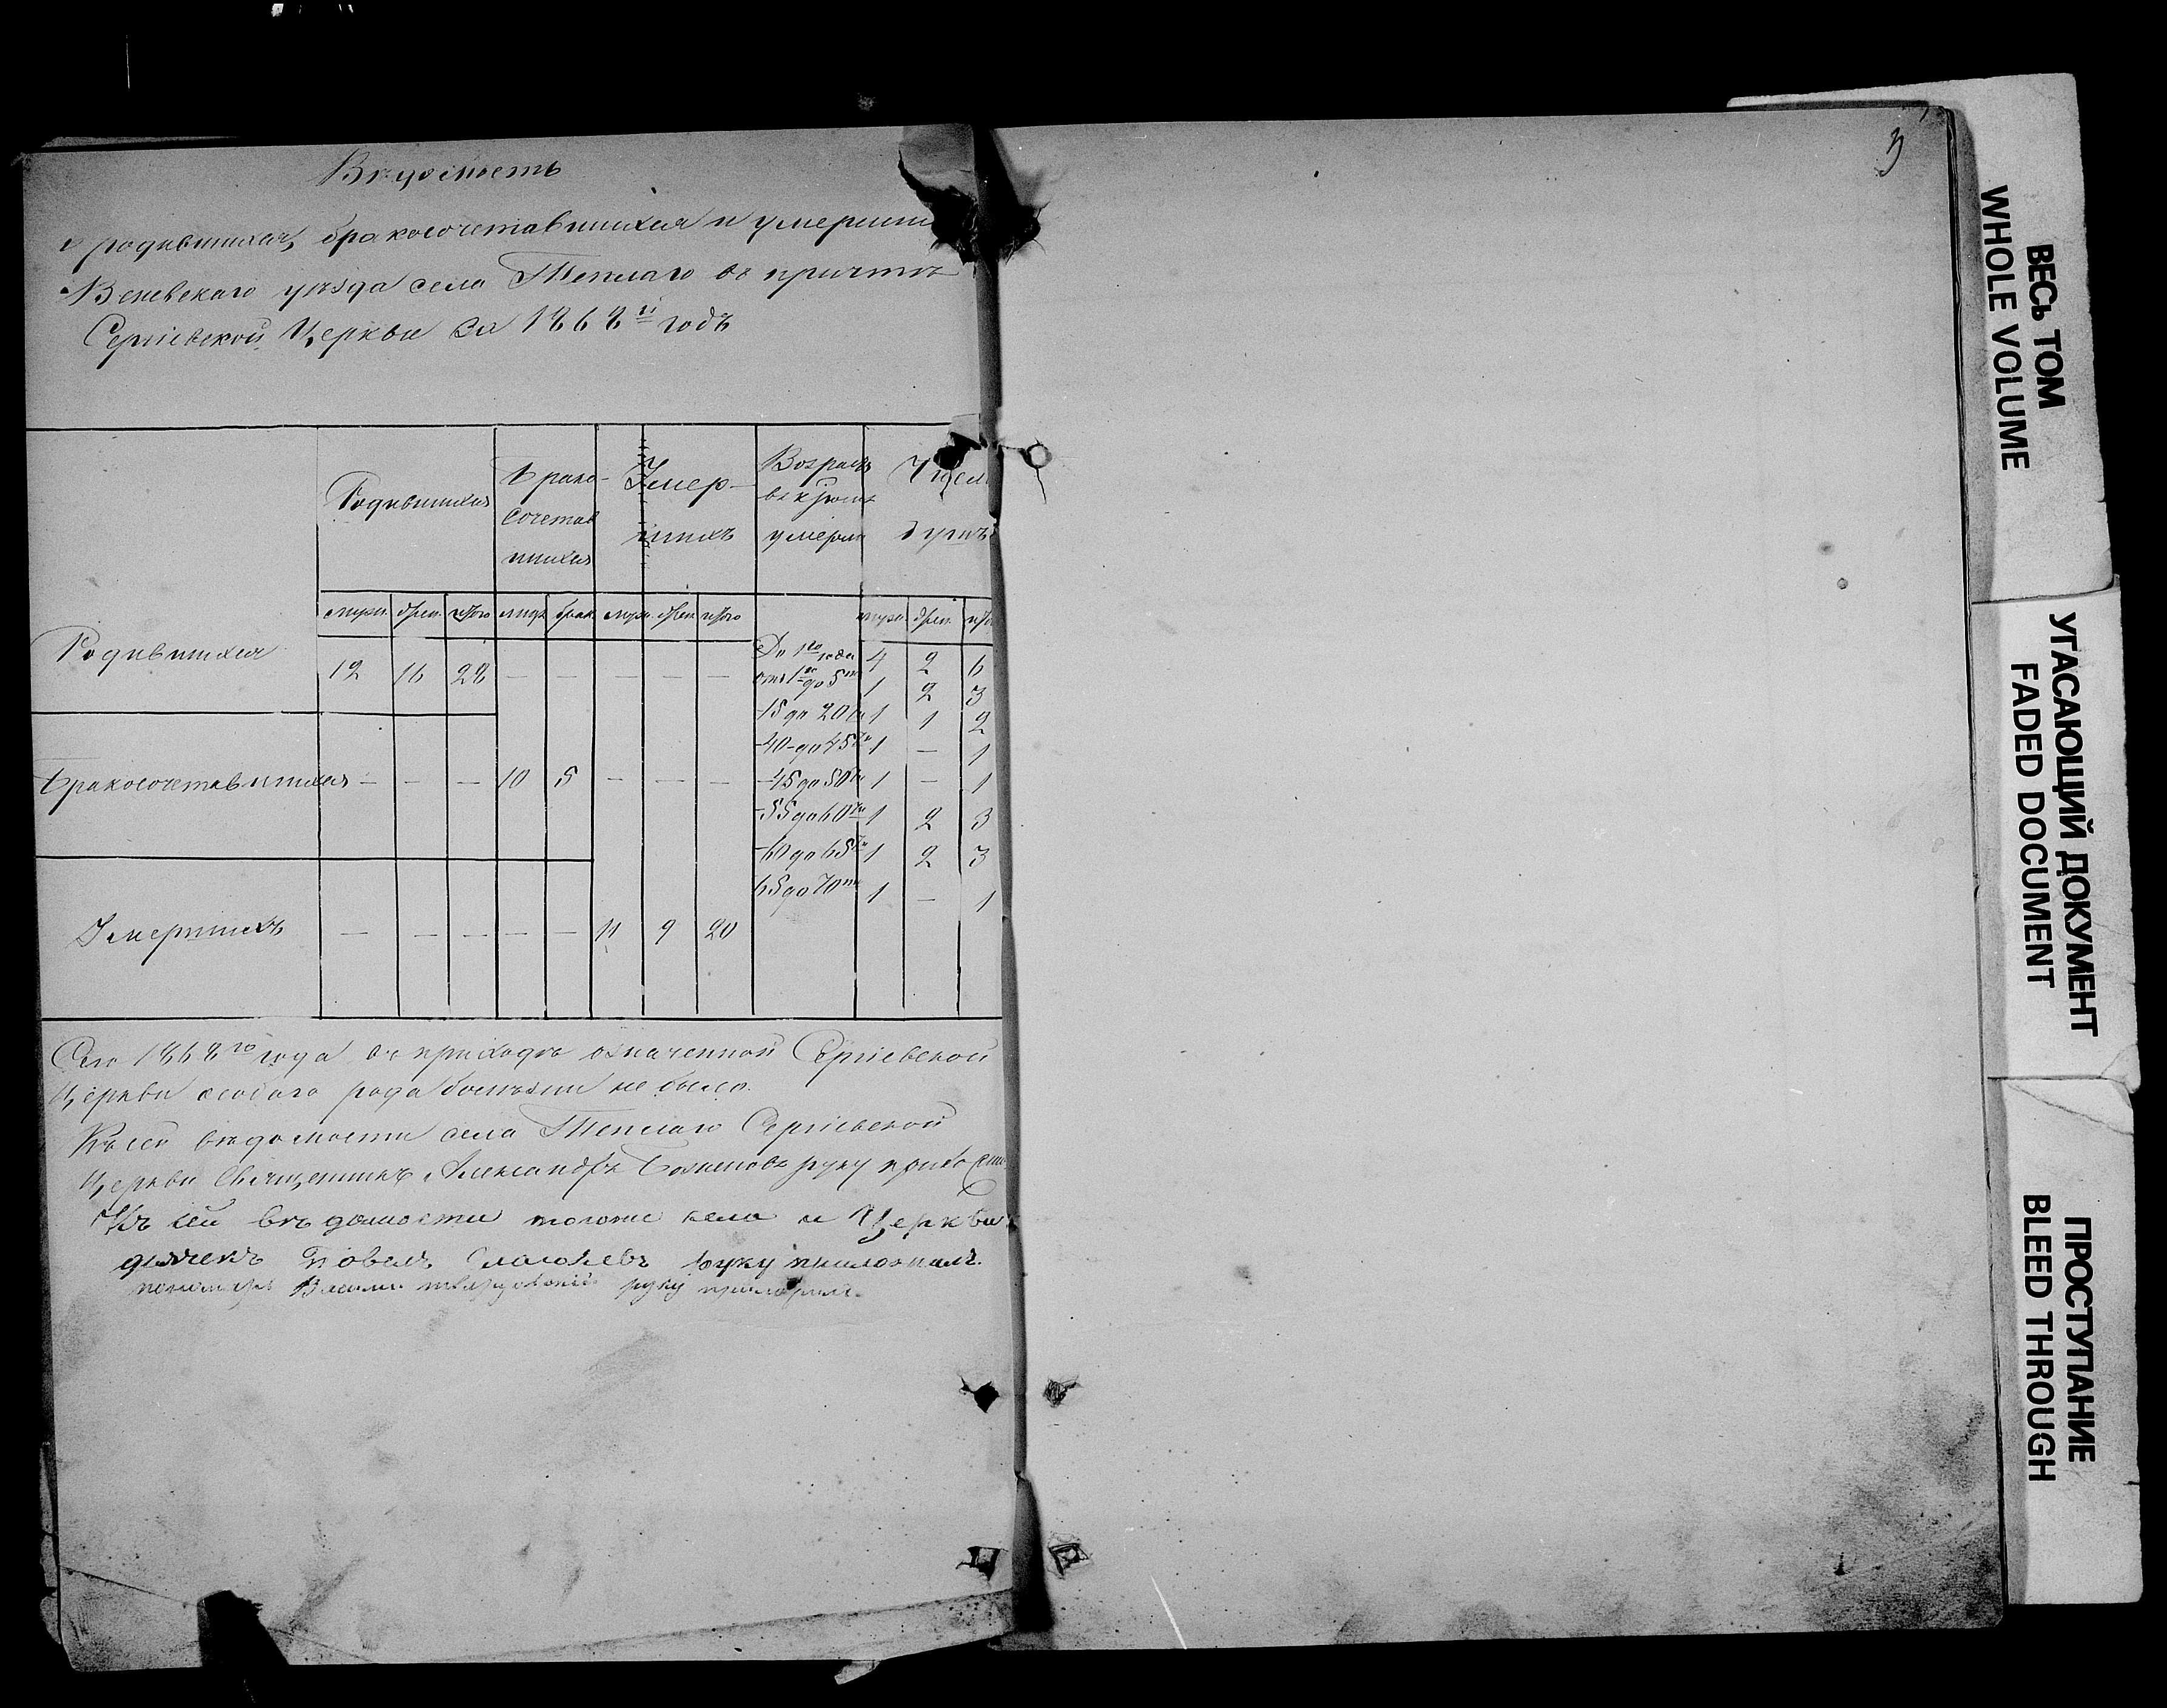 Вѣдомость
о родившихся, бракосочетавшихся и умерших
Веневскаго уѣзда села Теплаго въ причтѣ
Сергіевской Церкви за 1868й годъ
Родившихся
Брако-
сочетав
шихся
Умер-
шихъ
Возрастъ
умерш
Число
душъ
муж. жен. итого муж. брак. муж. жен. итого муж. жен. ито
Родившихся 12 16 28 — — — — —
До 1го года 4 2 6
отъ 1го до 5ти 1 2 3
15 до 20ти 1 1 2
40 до 45ти 1 — 1
Бракосочетавшихся — — — 10 5 — — —
45 до 50ти 1 — 1
55 до 60ти 1 2 3
60 до 65ти 1 2 3
65 до 70ти 1 — 1
Умершихъ — — — — — 11 9 20
Сего 1868го года въ приходѣ означенной Сергіевской
Церкви особаго рода болѣзни не было.
Къ сей вѣдомости села Теплаго Сергіевской
Церкви Священникъ Александръ руку приложи
Къ сей вѣдомости тогоже села и Церкви
дьячекъ Павелъ руку приложилъ.
пономарь Василій руку приложилъ.
3
ВЕСЬ ТОМ
WHOLE VOLUME
УГАСАЮЩИЙ ДОКУМЕНТ
FADED DOCUMENT
ПРОСТУПАНИЕ
BLEED THROUGH